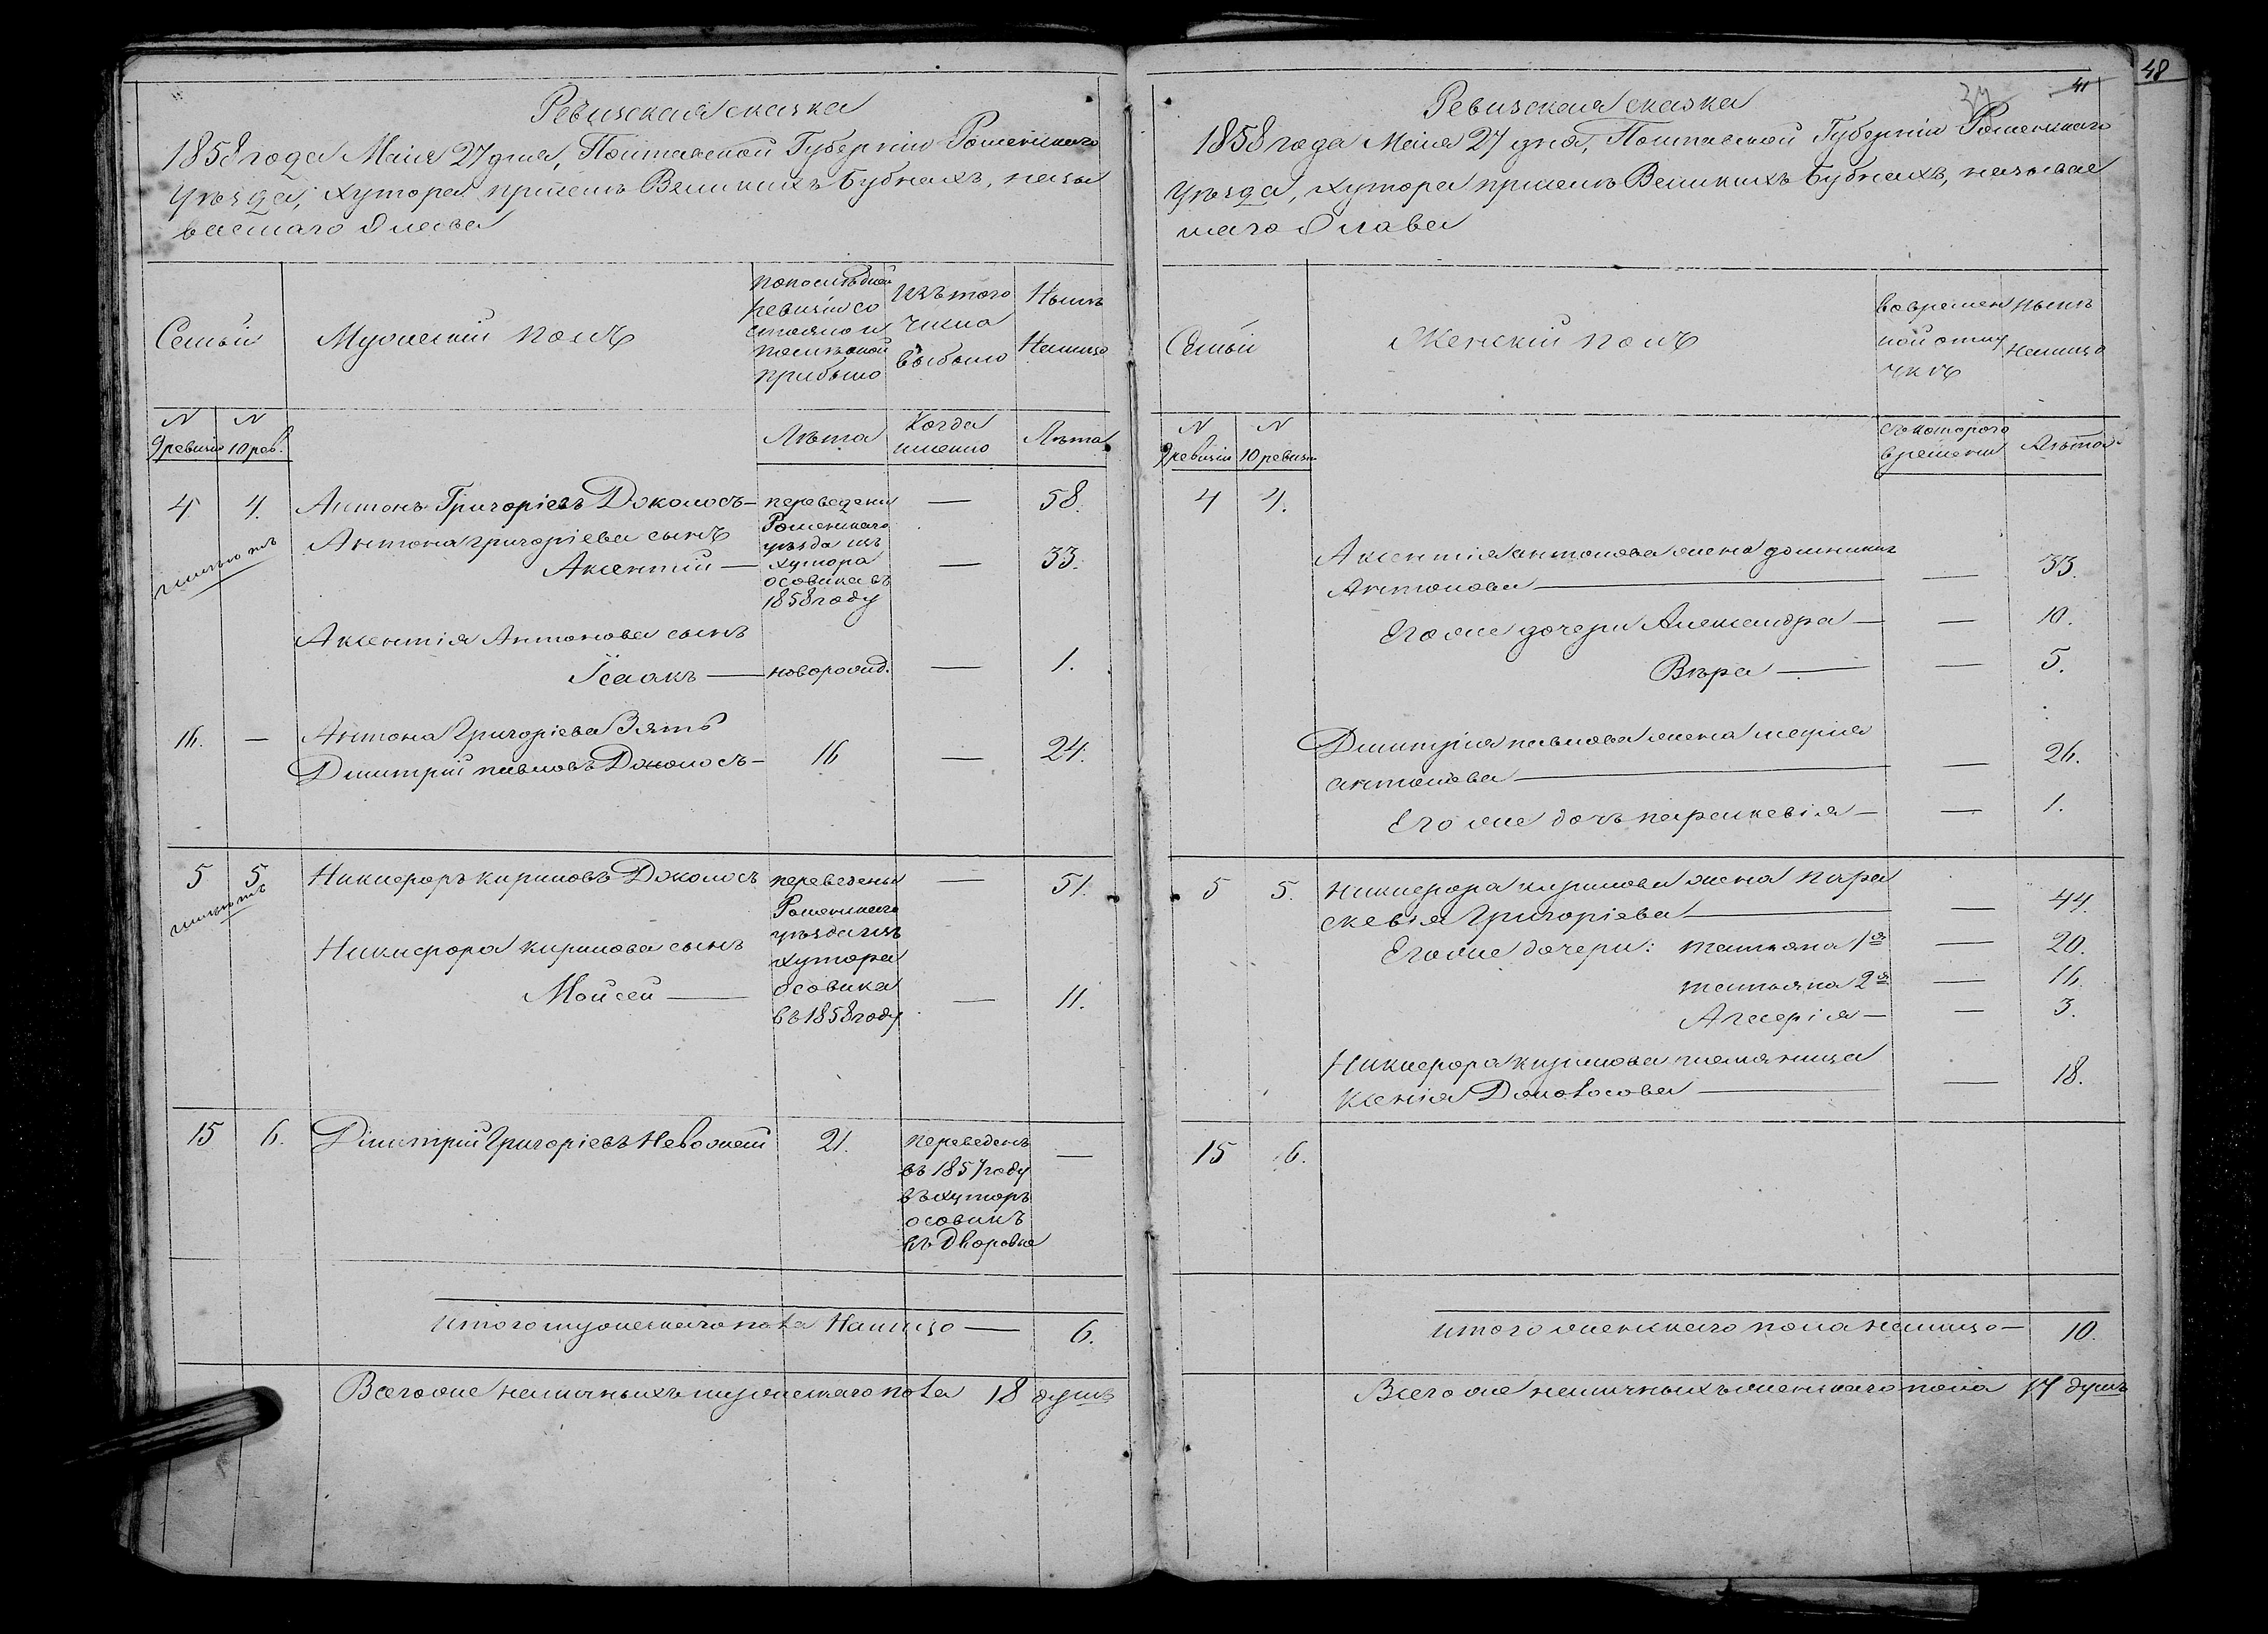 48
41
Ревизская сказка
1858 года Маія 27 дня, Полтавской Губерніи Роменскаго
Уѣзда, хутора при селѣ Великихъ Бубнахъ, назы
ваемаго
Семьи
Мужескій полъ
По последней
ревизіи со
стояло и
послѣ оной
прибыло
Изъ того
числа
выбыло
Нынѣ
Налицо
N
9 ревизіи
N
10 рев.
Лѣта
Когда
именно
Лѣта
4
4.
Антонъ Григоріевъ Доколосъ —
переведены
—
58.
Антона Григоріева сынъ
Роменскаго
уѣзда изъ
Аксентій —
хутора
—
33.
осовика въ
1858 году
Аксентія Антонова сынъ
Ісаакъ —
новорожд.
—
1.
16.
—
Антона Григоріева Зять
Дмитрій павловъ Доколосъ —
16
—
24.
5
5
Никифоръ кириловъ Доколосъ
переведены
—
51.
Роменскаго
уѣзда изъ
Никифора кирилова сынъ
хутора
Мойсей —
осовика
—
11.
въ 1858 году
15
6.
Дмитрій Григоріевъ Неважай
21.
переведенъ
—
въ 1857 году
въ хуторъ
осовикъ
въ Дворовые
итого мужескаго пола Налицо —
6.
Всего же наличныхъ мужескаго пола 18 душъ
Ревизская сказка
1858 года Маія 27 дня, Полтавской Губерніи Роменскаго
Уѣзда, хутора при селѣ Великихъ Бубнахъ, называе
маго
Семьи
Женскій полъ
во времен
ной отлу
чкѣ
нынѣ
налицо
N
9 ревизіи
N
10 ревизіи
съ котораго
времени
Лѣта
4
4.
Аксентія антонова жена домникія
Антонова —
—
33.
Его же дочери Александра —
—
10.
Вѣра —
—
5.
Дмитрія павлова жена марія
антонова —
—
26.
Его же дочь параскевія —
—
1.
5
5.
Никифора кирилова жена Пара
скевія Григоріева —
—
44.
Его же дочери: татьяна 1я
—
20.
татьяна 2я
—
16.
—
3.
Никифора кирилова племяница
Ксенія Доколосова —
—
18.
15
6.
итого женскаго пола налицо —
10.
Всего же наличныхъ женскаго пола 17 душъ